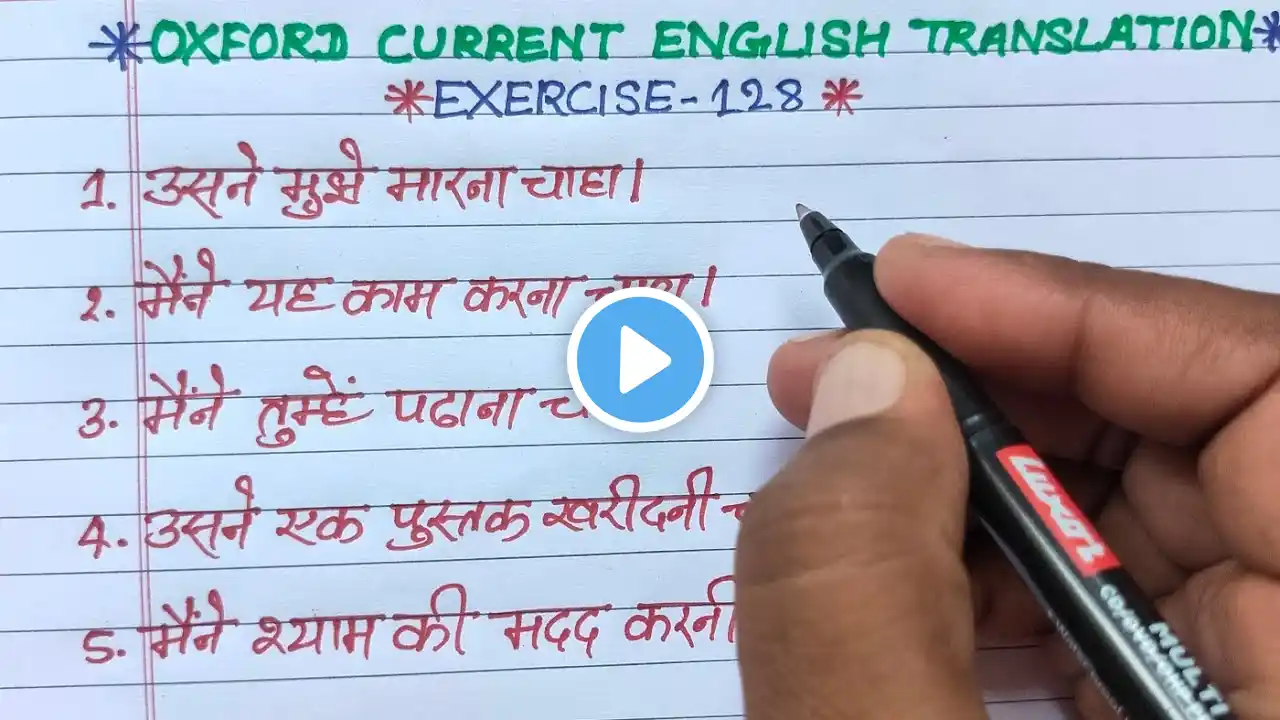 *OXFORD CURRENT ENGLISH TRANSLATION*
*EXERCISE-128*
1. उसने मुझे मारना चाहा।
2. मैंने यह काम करना
3. मैंने तुम्हें पढाना
4. उसने एक पुस्तक खरीदनी
5. मैंने श्याम की मदद करनी
LUXOR
MULTI